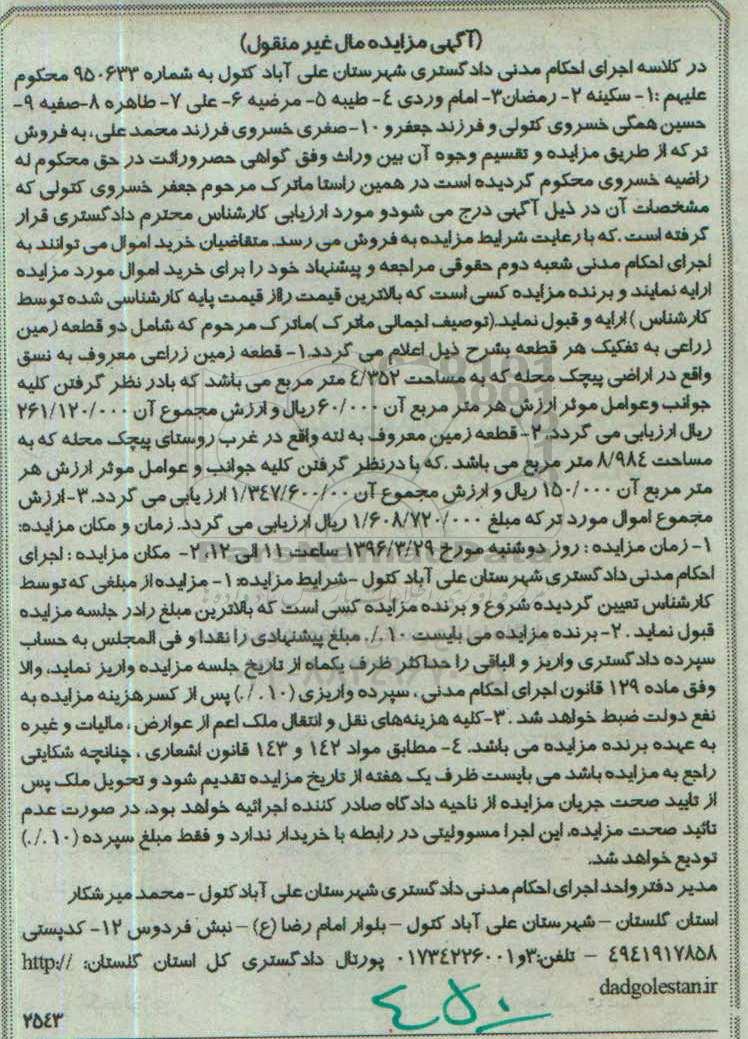 (آگهی مزایده مال غیر منقول)
در کلاسه اجرای احکام مدنی دادگستری شهرستان علی آباد کتول به شماره ۹۵۰۶۳۳ محکوم
علیهم :۱- سکینه ۲- رمضان۳- امام وردی ٤- طیبه ۵- مرضیه ۶- علی ۷- طاهره ۸-صفیه ۹-
حسین همگی خسروی کتولی و فرزند جعفرو ۱۰-صغری خسروی فرزند محمد علی، به فروش
ترکه از طریق مزایده و تقسیم وجوه آن بین وراث وفق گواهی حصروراثت در حق محکوم له
راضیه خسروی محکوم گردیده است در همین راستا ماترک مرحوم جعفر خسروی کتولی که
مشخصات آن در ذیل آگهی درج می شودو مورد ارزیابی کارشناس محترم دادگستری قرار
گرفته است .که با رعایت شرایط مزایده به فروش می رسد. متقاضیان خرید اموال می توانند به
اجرای احکام مدنی شعبه دوم حقوقی مراجعه و پیشنهاد خود را برای خرید اموال مورد مزایده
ارایه نمایند و برنده مزایده کسی است که بالاترین قیمت را(از قیمت پایه کارشناسی شده توسط
کارشناس ) ارایه و قبول نماید.(توصیف اجمالی ماترک )ماترک مرحوم که شامل دو قطعه زمین
زراعی به تفکیک هر قطعه بشرح ذیل اعلام می گردد.۱- قطعه زمین زراعی معروف به نسق
واقع در اراضی پیچک محله که به مساحت ٤/۳۵۲ متر مربع می باشد که بادر نظر گرفتن کلیه
جوانب وعوامل موثر ارزش هر متر مربع آن ۶۰/۰۰۰ریال و ارزش مجموع آن ۲۶۱/۱۲۰/۰۰۰
ریال ارزیابی می گردد. ۲- قطعه زمین معروف به لته واقع در غرب روستای پیچک محله که به
مساحت ۸/۹۸٤ متر مربع می باشد .که با درنظر گرفتن کلیه جوانب و عوامل موثر ارزش هر
متر مربع آن ۱۵۰/۰۰۰ ریال و ارزش مجموع آن ۱/۳٤۷/۶۰۰/۰۰ ارزیابی می گردد. ۳-ارزش
مجموع اموال مورد ترکه مبلغ ۱/۶۰۸/۷۲۰/۰۰۰ ریال ارزیابی می گردد. زمان و مکان مزایده:
۱- زمان مزایده : روز دوشنبه مورخ ۱۳۹۶/۳/۲۹ ساعت ۱۱ الی ۱۲. ۲- مکان مزایده : اجرای
احکام مدنی دادگستری شهرستان علی آباد کتول -شرایط مزایده: ۱- مزایده از مبلغی که توسط
کارشناس تعیین گردیده شروع و برنده مزایده کسی است که بالاترین مبلغ رادر جلسه مزایده
قبول نماید . ۲- برنده مزایده می بایست ۱۰./. مبلغ پیشنهادی را نقدا و فی المجلس به حساب
سپرده دادگستری واریز و الباقی را حداکثر ظرف یکماه از تاریخ جلسه مزایده واریز نماید، والا
وفق ماده ۱۲۹ قانون اجرای احکام مدنی ، سپرده واریزی (۱۰ ./.) پس از کسرهزینه مزایده به
نفع دولت ضبط خواهد شد .۳-کلیه هزینه‌های نقل و انتقال ملک اعم از عوارض ، مالیات و غیره
به عهده برنده مزایده می باشد. ٤- مطابق مواد ۱٤۲ و ۱٤۳ قانون اشعاری ، چنانچه شکایتی
راجع به مزایده باشد می بایست ظرف یک هفته از تاریخ مزایده تقدیم شود و تحویل ملک پس
از تایید صحت جریان مزایده از ناحیه دادگاه صادر کننده اجرائیه خواهد بود، در صورت عدم
تائید صحت مزایده، این اجرا مسوولیتی در رابطه با خریدار ندارد و فقط مبلغ سپرده (۱۰ ./.)
تودیع خواهد شد.
مدیر دفترواحد اجرای احکام مدنی دادگستری شهرستان علی آباد کتول -محمد میر شکار
استان گلستان – شهرستان علی آباد کتول – بلوار امام رضا (ع) – نبش فردوس ۱۲- کدپستی
٤۹٤۱۹۱۷۸۵۸ – تلفن:۳و۰۱۷۳٤۲۲۶۰۰۱ پورتال دادگستری کل استان گلستان: http://
dadgolestan.ir
۲۵٤۳
٤۵۰